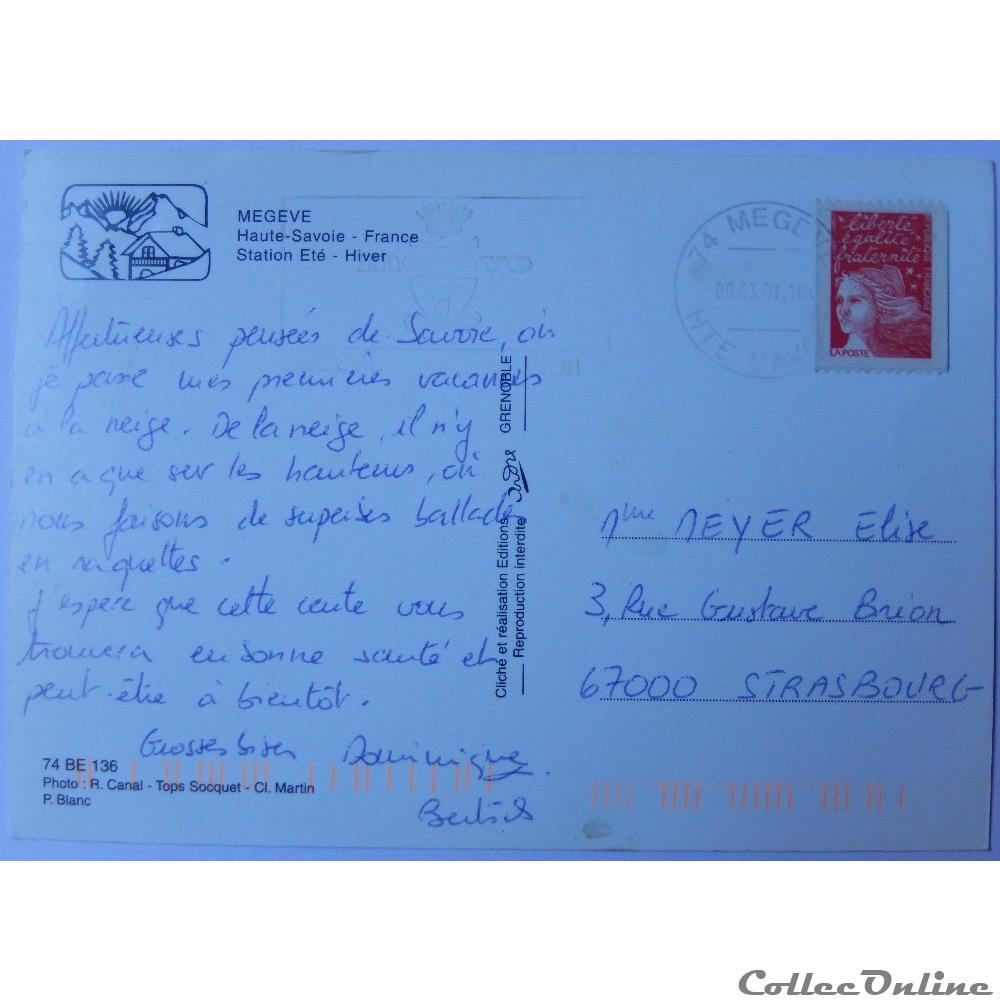 MEGEVE
Haute-Savoie - France
Station Eté - Hiver
Affectueuses pensées de Savoie, où
je passe mes premières vacances
à la neige. De la neige, il n'y
en a que sur les hauteurs, où
nous faisons de superbes ballades
en raquettes.
J'espère que cette carte vous
trouvera en bonne santé et
peut-être à bientôt.
Grosses bises Dominique
74 BE 136
Photo : R. Canal - Tops Socquet - Cl. Martin
P. Blanc
Cliché et réalisation Editions André GRENOBLE
Reproduction interdite
74 MEGEVE
09.03.01
HTE SAVOIE
liberté
égalité
fraternité
LA POSTE
Mme MEYER Elise
3, Rue Gustave Brion
67000 STRASBOURG
CollecOnline